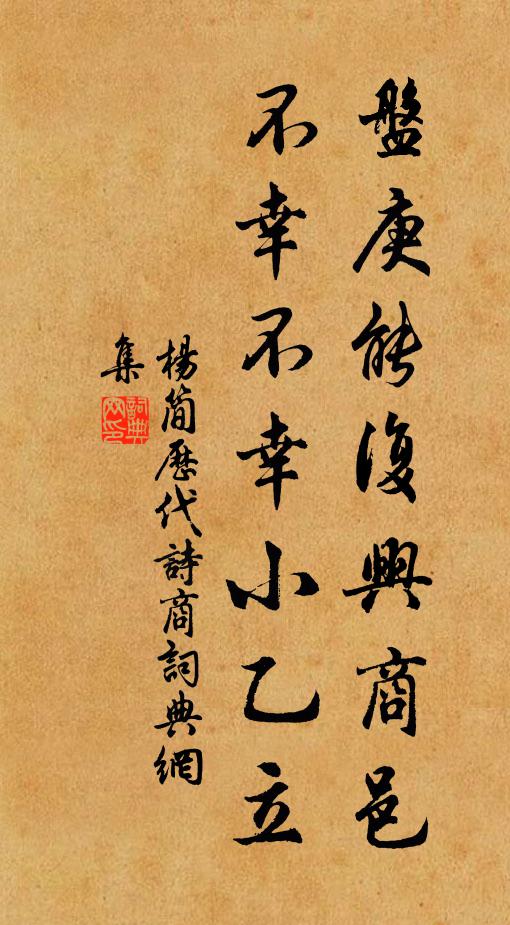 盤庚能復興商邑
不幸不幸小乙立
楊簡歷代詩商詞典網
集
詞典網印